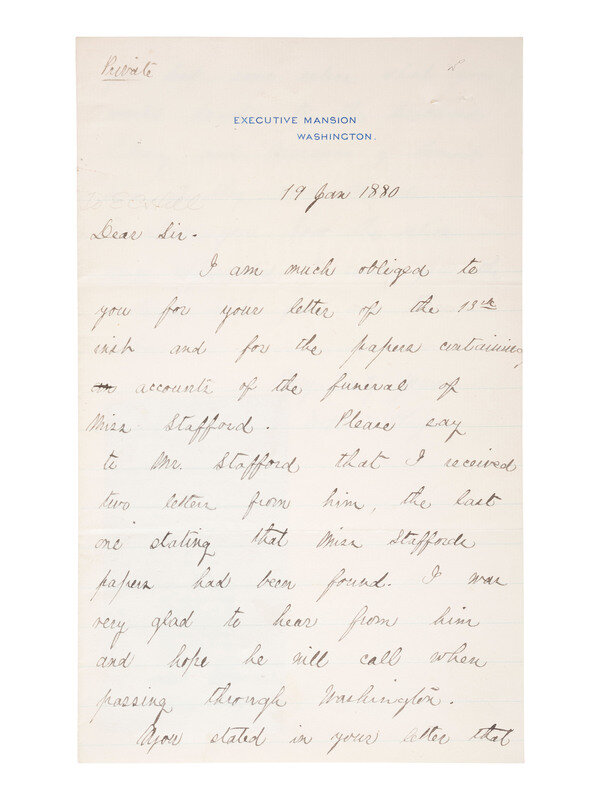 Private
EXECUTIVE MANSION
WASHINGTON.
19 Jan 1880
Dear Sir.
I am much obliged to
you for your letter of the 15th
inst and for the papers containing
accounts of the funeral of
Miss Stafford. Please say
to Mr. Stafford that I received
two letters from him, the last
one stating that Miss Staffords
papers had been found. I was
very glad to hear from him
and hope he will call when
passing through Washington.
You stated in your letter that